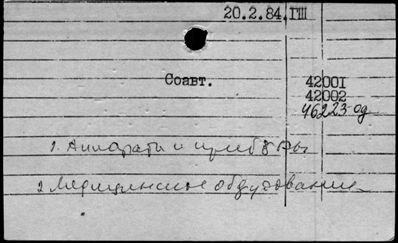 20.2.84.ГШ
Соавт.
42001
42002
46223 од
1. Аппараты и приборы
2 Медицинское оборудование